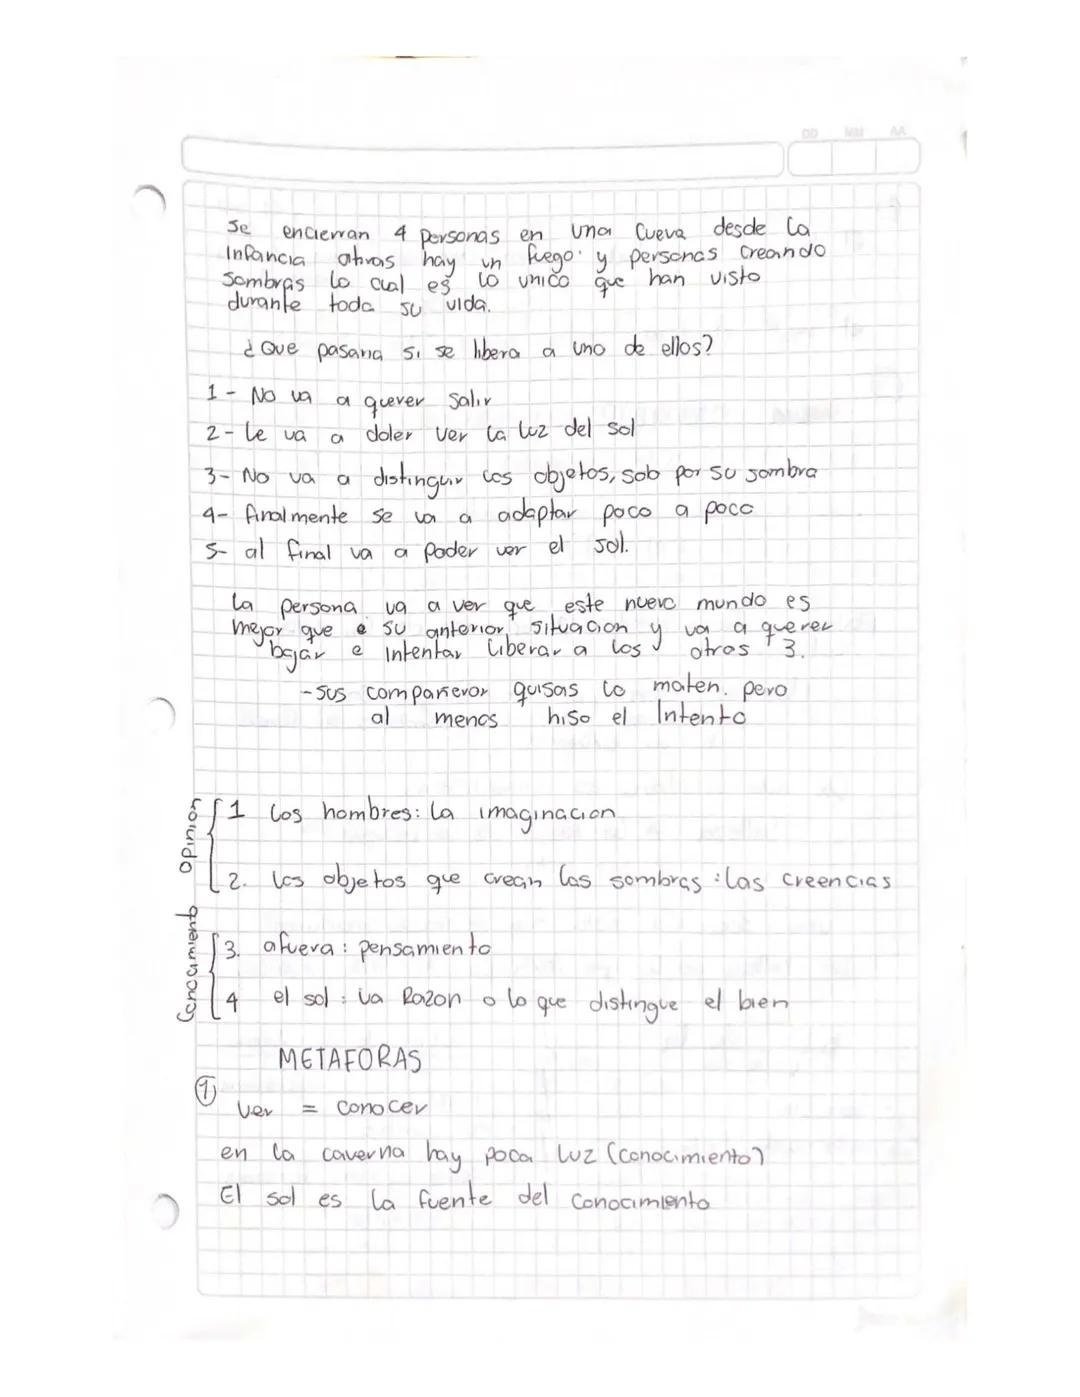 DD MM AA
Se encierran 4 personas en una Cueva desde la
Infancia atras hay un fuego y personas creando
Sombras lo cual es lo unico que han visto
durante toda su vida.
¿Que pasaria si se libera a uno de ellos?
1- No va a querer Salir
2- Le va a doler ver la luz del sol
3- No va a distinguir los objetos, solo por su sombra
4- finalmente se va a adaptar poco a poco
5- al final va a poder ver el sol.
La persona va a ver que este nuevo mundo es
mejor que su anterior situacion y va a querer
bajar e intentar liberar a los otros 3.
- sus compañeros quisas lo maten. pero
al menos hiso el Intento
Opinion
1 los hombres: la imaginacion
2. los objetos que crean las sombras: las creencias
Conocimiento
3. afuera: pensamiento
4 el sol: la Razon o lo que distingue el bien
METAFORAS
1
ver = conocer
en la caverna hay poca luz (conocimiento)
El sol es la fuente del conocimiento